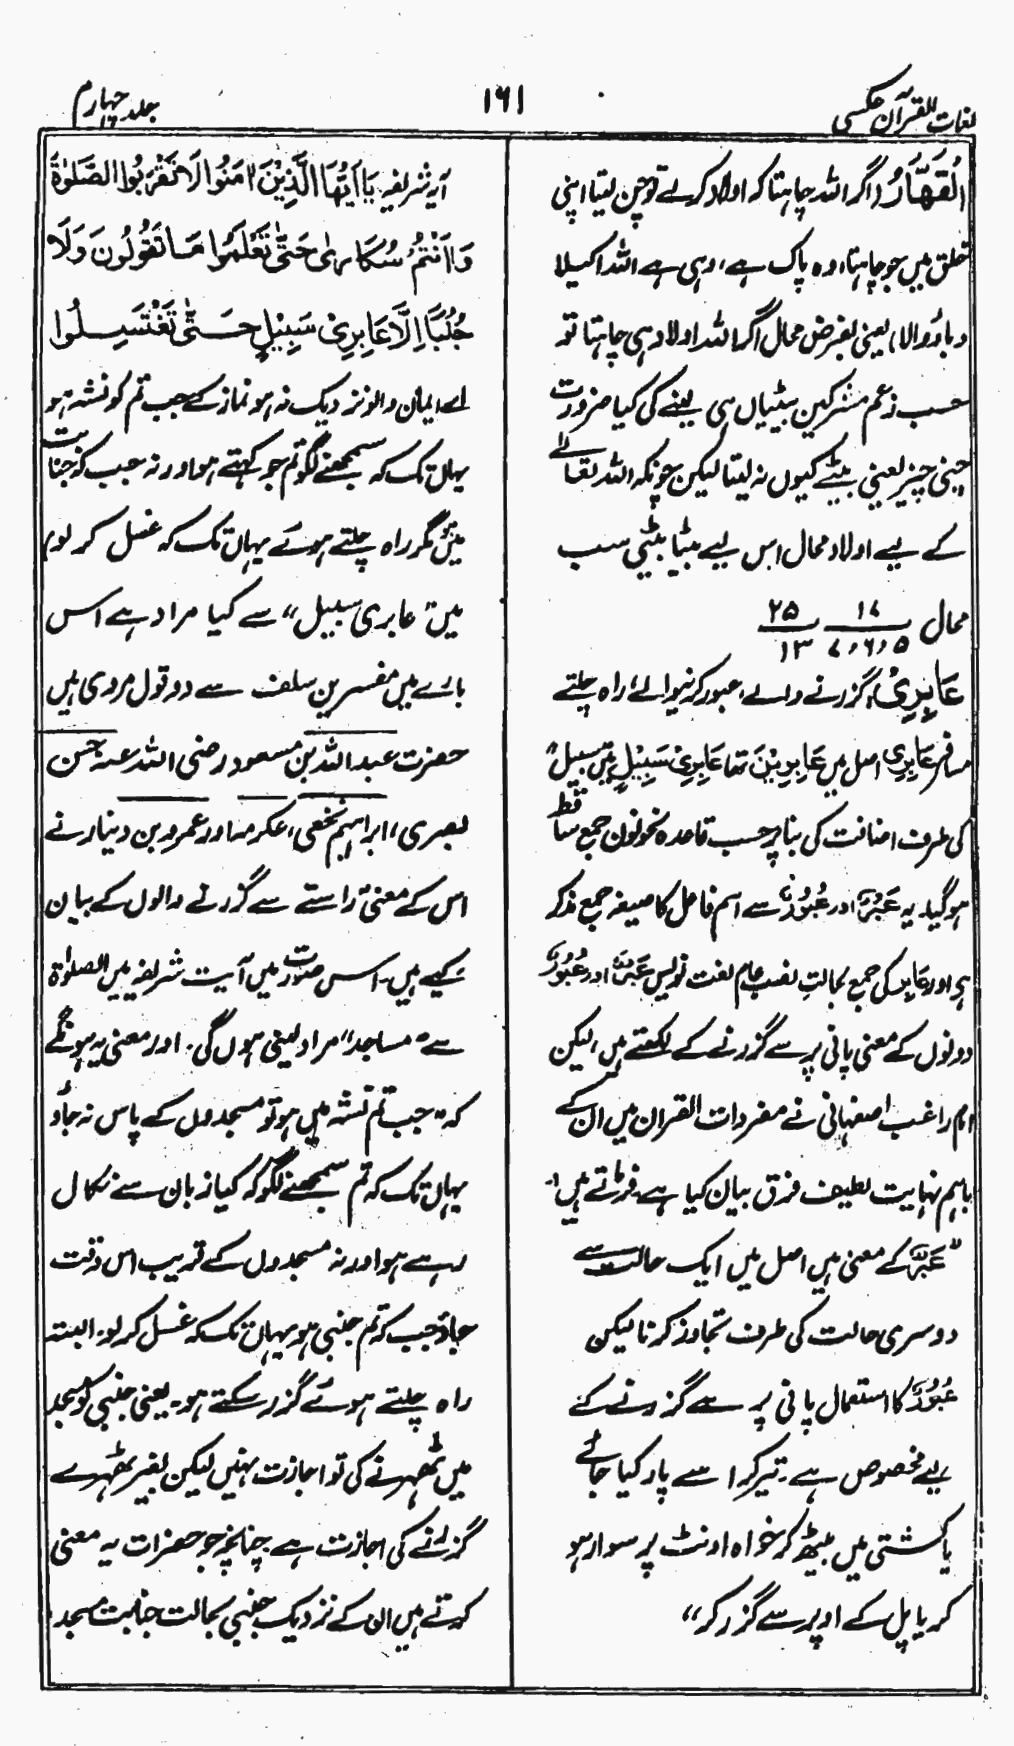 لغات القرآن عکسی
۱۶۱
جلد چہارم
الْقَهَّارُ (اگر اللہ چاہتا کہ اولاد کرلے تو چن لیتا اپنی
خلق میں جو چاہتا، وہ پاک ہے، وہی ہے اللہ اکیلا
دباؤ والا) یعنی بفرض محال اگر اللہ اولاد ہی چاہتا تو
حسب زعم مشرکین بیٹیاں ہی لینے کی کیا ضرورت
چنی چیز یعنی بیٹے کیوں نہ لیتا لیکن چونکہ اللہ تعالٰے
کے لیے اولاد محال اس لیے بیٹا بیٹی سب
محال ۱۷ ۲۵
۵،۶،۷ ۱۳
عَابِرِیْ، گزرنے والے، عبور کرنیوالے، راہ چلتے
مسافر عَابِرِی اصل میں عَابِرِیْنَ تھا عَابِرِیْ سَبِیْلٍ میں سبیل
کی طرف اضافت کی بنا پر حسب قاعدہ نحو نون جمع ساقط
ہوگیا۔ یہ عَبْرٌ اور عُبُوْرٌ سے اسم فاعل کا صیغہ جمع مذکر
ہے اور عابر کی جمع بحالتِ نصب عام لغت نویس عَبْرٌ اور عُبُوْرٌ
دونوں کے معنی پانی پر سے گزرنے کے لکھتے ہیں، لیکن
امام راغب اصفہانی نے مفردات القرآن میں ان کے
باہم نہایت لطیف فرق بیان کیا ہے، فرماتے ہیں:-
”عَبْرٌ کے معنی ہیں اصل میں ایک حالت سے
دوسری حالت کی طرف تجاوز کرنا لیکن
عُبُوْرٌ کا استعمال پانی پر سے گزرنے کے
لیے مخصوص ہے، تیر کر اسے پار کیا جائے
یا کشتی میں بیٹھ کر خواہ اونٹ پر سوار ہو
کر یا پل کے اوپر سے گزر کر“
آیہ شریفہ یَا اَیُّهَا الَّذِیْنَ اٰمَنُوا لَا تَقْرَبُوا الصَّلٰوةَ
وَاَنْتُمْ سُكَارٰی حَتّٰی تَعْلَمُوا مَا تَقُولُونَ وَلَا
جُنُبًا اِلَّا عَابِرِیْ سَبِیْلٍ حَتّٰی تَغْتَسِلُوا
(اے ایمان والو نزدیک نہ ہو نماز کے جب تم کو نشہ ہو
یہاں تک کہ سمجھنے لگو تم جو کہتے ہو اور نہ جب کہ جنابت
میں ہو مگر راہ چلتے ہوئے یہاں تک کہ غسل کر لو)
میں ”عابری سبیل“ سے کیا مراد ہے اس
بارے میں مفسرین سلف سے دو قول مروی ہیں
حضرت عبد اللہ بن مسعود رضی اللہ عنہ حسن
بصری، ابراہیم نخعی، عکرمہ اور عمرو بن دینار نے
اس کے معنی راستے سے گزرنے والوں کے بیان
کیے ہیں۔ اس صورت میں آیت شریفہ میں الصلوٰۃ
سے ”مساجد“ مراد لینی ہوں گی۔ اور معنی یہ ہونگے
کہ ”جب تم نشہ میں ہو تو مسجدوں کے پاس نہ جاؤ
یہاں تک کہ تم سمجھنے لگو کہ کیا زبان سے نکال
رہے ہو اور نہ مسجدوں کے قریب اس وقت
جاؤ جب کہ تم جنبی ہو یہاں تک کہ غسل کر لو۔ البتہ
راہ چلتے ہوئے گزر سکتے ہو۔ یعنی جنبی کو مسجد
میں ٹھہرنے کی تو اجازت نہیں لیکن بغیر ٹھہرے
گزرنے کی اجازت ہے چنانچہ جو حضرات یہ معنی
کرتے ہیں ان کے نزدیک جنبی بحالت جنابت مسجد